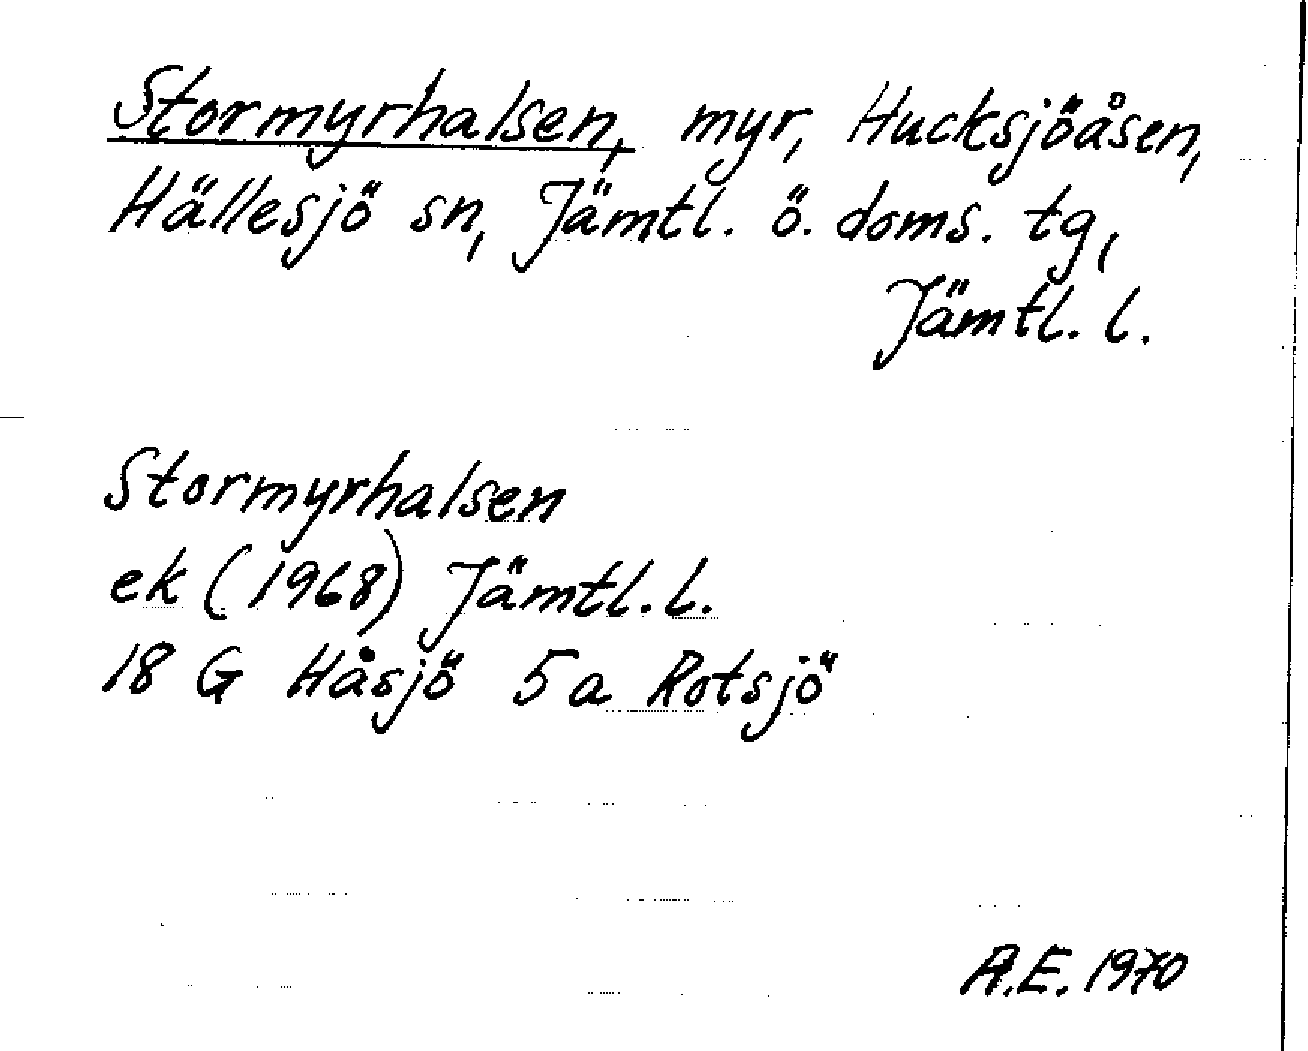 Stormyrhalsen, myr, Hucksjöåsen,
Hällesjö sn, Jämtl. ö. doms. tg,
Jämtl. l.
Stormyrhalsen
ek (1968) Jämtl. l.
18 G Håsjö 5a Rotsjö
A.E. 1970